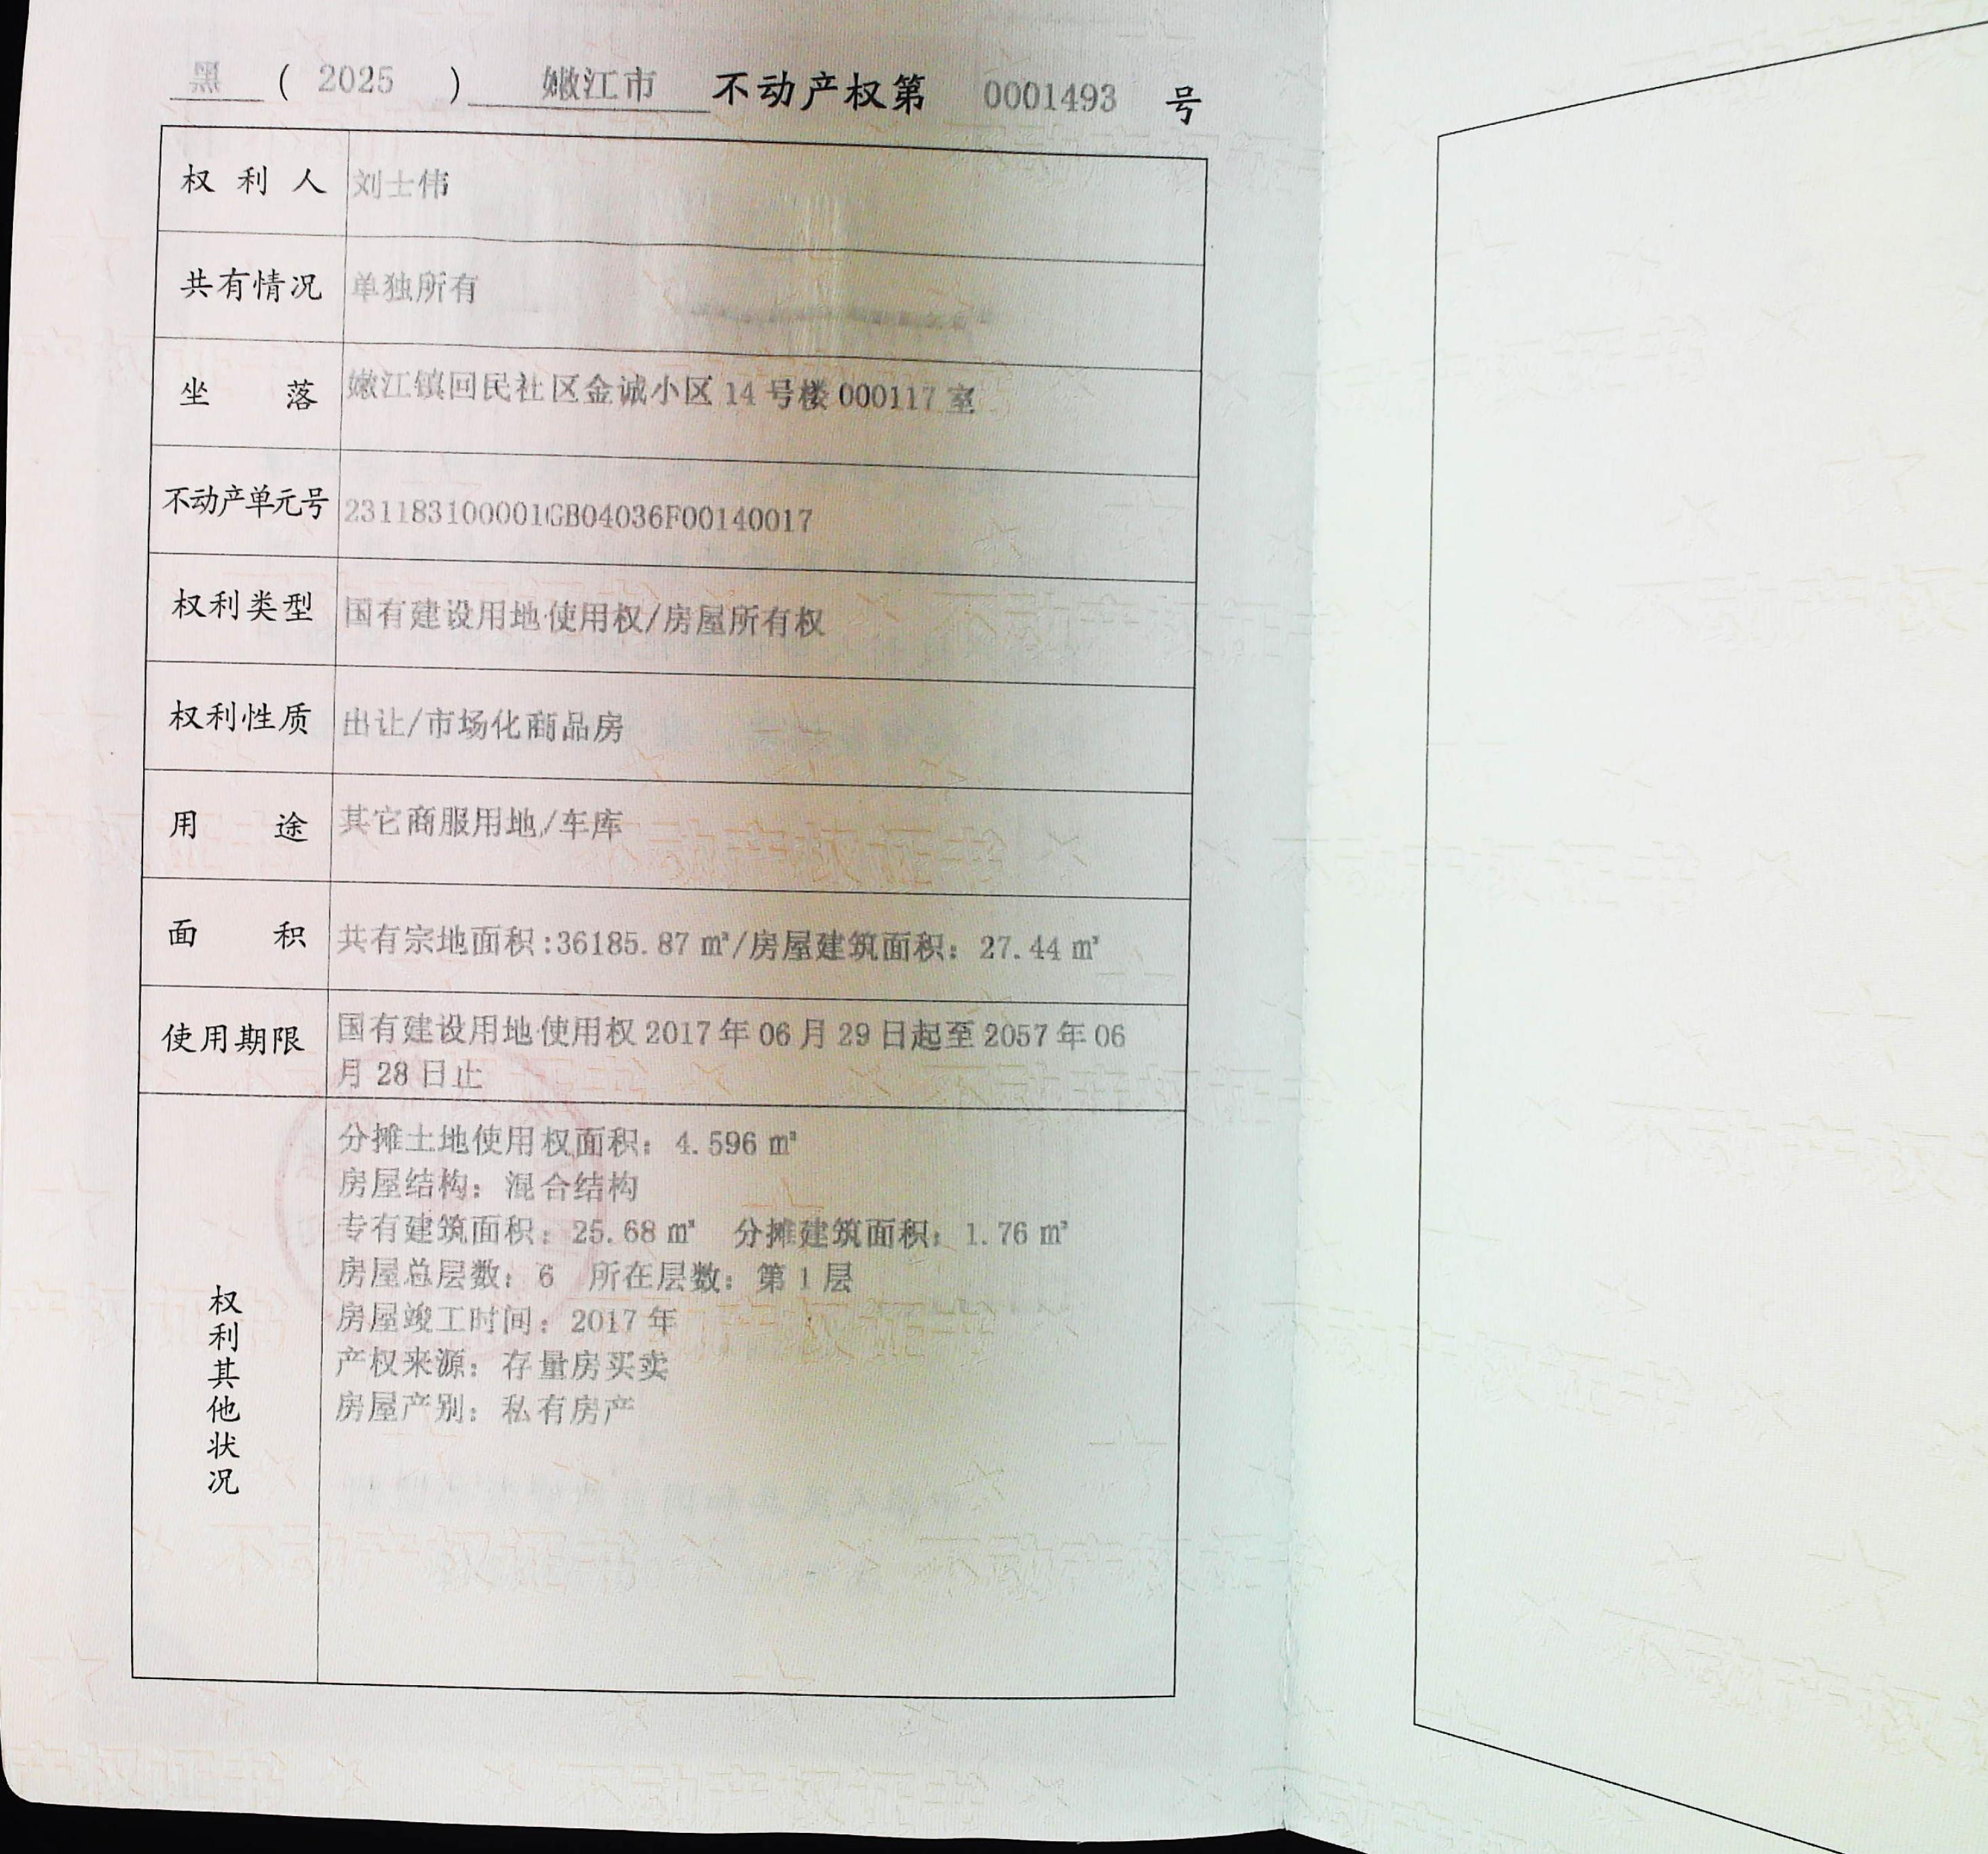 黑 ( 2025 ) 嫩江市 不动产权第 0001493 号
权利人 刘士伟
共有情况 单独所有
坐落 嫩江镇回民社区金诚小区 14 号楼 000117 室
不动产单元号 231183100001GB04036F00140017
权利类型 国有建设用地使用权/房屋所有权
权利性质 出让/市场化商品房
用途 其它商服用地/车库
面积 共有宗地面积:36185.87 ㎡/房屋建筑面积: 27.44 ㎡
使用期限 国有建设用地使用权 2017 年 06 月 29 日起至 2057 年 06
月 28 日止
权利其他状况
分摊土地使用权面积: 4.596 ㎡
房屋结构: 混合结构
专有建筑面积: 25.68 ㎡ 分摊建筑面积: 1.76 ㎡
房屋总层数: 6 所在层数: 第 1 层
房屋竣工时间: 2017 年
产权来源: 存量房买卖
房屋产别: 私有房产